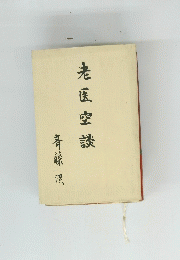 老医空談
斉藤 淏